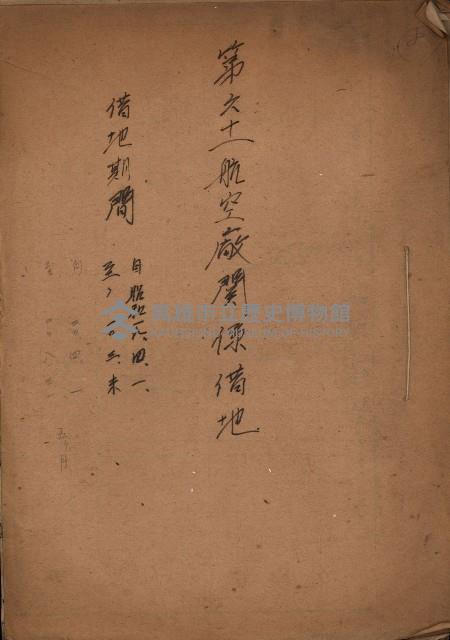 第六十一航空廠関係借地
借地期間
自昭和一八、四、一、
至〃二〇、三、末
高雄市立歷史博物館
KAOHSIUNG MUSEUM OF HISTORY